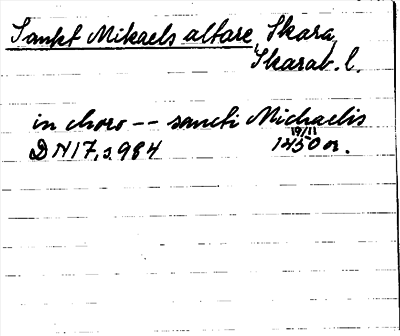 Sankt Mikaels altare, Skara,
Skarab. l.
in choro -- sancti Michaelis
19/11
DN 17, s. 984 1450 or.